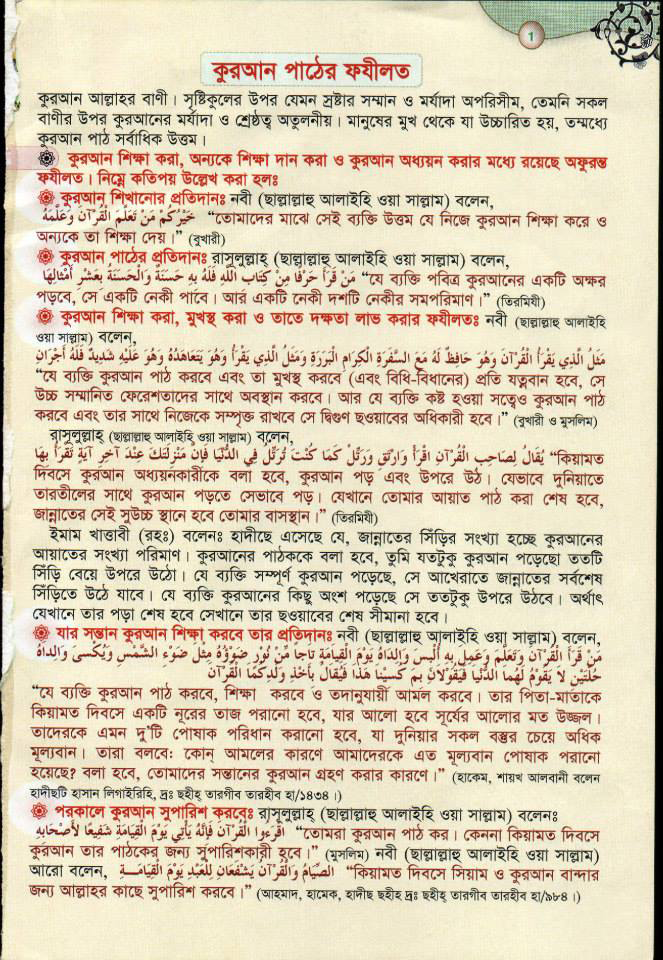 1
কুরআন পাঠের ফযীলত
কুরআন আল্লাহর বাণী। সৃষ্টিকুলের উপর যেমন স্রষ্টার সম্মান ও মর্যাদা অপরিসীম, তেমনি সকল
বাণীর উপর কুরআনের মর্যাদা ও শ্রেষ্ঠত্ব অতুলনীয়। মানুষের মুখ থেকে যা উচ্চারিত হয়, তম্মধ্যে
কুরআন পাঠ সর্বাধিক উত্তম।
কুরআন শিক্ষা করা, অন্যকে শিক্ষা দান করা ও কুরআন অধ্যয়ন করার মধ্যে রয়েছে অফুরন্ত
ফযীলত। নিম্নে কতিপয় উল্লেখ করা হলঃ
কুরআন শিখানোর প্রতিদানঃ নবী (ছাল্লাল্লাহু আলাইহি ওয়া সাল্লাম) বলেন,
خَيْرُكُمْ مَنْ تَعَلَّمَ الْقُرْآنَ وَعَلَّمَهُ “তোমাদের মাঝে সেই ব্যক্তি উত্তম যে নিজে কুরআন শিক্ষা করে ও
অন্যকে তা শিক্ষা দেয়।” (বুখারী)
কুরআন পাঠের প্রতিদানঃ রাসূলুল্লাহ্ (ছাল্লাল্লাহু আলাইহি ওয়া সাল্লাম) বলেন,
مَنْ قَرَأَ حَرْفًا مِنْ كِتَابِ اللَّهِ فَلَهُ بِهِ حَسَنَةٌ وَالْحَسَنَةُ بِعَشْرِ أَمْثَالِهَا “যে ব্যক্তি পবিত্র কুরআনের একটি অক্ষর
পড়বে, সে একটি নেকী পাবে। আর একটি নেকী দশটি নেকীর সমপরিমাণ।” (তিরমিযী)
কুরআন শিক্ষা করা, মুখস্থ করা ও তাতে দক্ষতা লাভ করার ফযীলতঃ নবী (ছাল্লাল্লাহু আলাইহি
ওয়া সাল্লাম) বলেন,
مَثَلُ الَّذِي يَقْرَأُ الْقُرْآنَ وَهُوَ حَافِظٌ لَهُ مَعَ السَّفَرَةِ الْكِرَامِ الْبَرَرَةِ وَمَثَلُ الَّذِي يَقْرَأُ وَهُوَ يَتَعَاهَدُهُ وَهُوَ عَلَيْهِ شَدِيدٌ فَلَهُ أَجْرَانِ
“যে ব্যক্তি কুরআন পাঠ করবে এবং তা মুখস্থ করবে (এবং বিধি-বিধানের) প্রতি যত্নবান হবে, সে
উচ্চ সম্মানিত ফেরেশতাদের সাথে অবস্থান করবে। আর যে ব্যক্তি কষ্ট হওয়া সত্বেও কুরআন পাঠ
করবে এবং তার সাথে নিজেকে সম্পৃক্ত রাখবে সে দ্বিগুণ ছওয়াবের অধিকারী হবে।” (বুখারী ও মুসলিম)
রাসূলুল্লাহ্ (ছাল্লাল্লাহু আলাইহি ওয়া সাল্লাম) বলেন,
يُقَالُ لِصَاحِبِ الْقُرْآنِ اقْرَأْ وَارْتَقِ وَرَتِّلْ كَمَا كُنْتَ تُرَتِّلُ فِي الدُّنْيَا فَإِنَّ مَنْزِلَتَكَ عِنْدَ آخِرِ آيَةٍ تَقْرَأُ بِهَا “কিয়ামত
দিবসে কুরআন অধ্যয়নকারীকে বলা হবে, কুরআন পড় এবং উপরে উঠ। যেভাবে দুনিয়াতে
তারতীলের সাথে কুরআন পড়তে সেভাবে পড়। যেখানে তোমার আয়াত পাঠ করা শেষ হবে,
জান্নাতের সেই সুউচ্চ স্থানে হবে তোমার বাসস্থান।” (তিরমিযী)
ইমাম খাত্তাবী (রহঃ) বলেনঃ হাদীছে এসেছে যে, জান্নাতের সিঁড়ির সংখ্যা হচ্ছে কুরআনের
আয়াতের সংখ্যা পরিমাণ। কুরআনের পাঠককে বলা হবে, তুমি যতটুকু কুরআন পড়েছো ততটি
সিঁড়ি বেয়ে উপরে উঠো। যে ব্যক্তি সম্পূর্ণ কুরআন পড়েছে, সে আখেরাতে জান্নাতের সর্বশেষ
সিঁড়িতে উঠে যাবে। যে ব্যক্তি কুরআনের কিছু অংশ পড়েছে সে ততটুকু উপরে উঠবে। অর্থাৎ
যেখানে তার পড়া শেষ হবে সেখানে তার ছওয়াবের শেষ সীমানা হবে।
যার সন্তান কুরআন শিক্ষা করবে তার প্রতিদানঃ নবী (ছাল্লাল্লাহু আলাইহি ওয়া সাল্লাম) বলেন,
مَنْ قَرَأَ الْقُرْآنَ وَتَعَلَّمَ وَعَمِلَ بِهِ أُلْبِسَ وَالِدَاهُ يَوْمَ الْقِيَامَةِ تَاجاً مِنْ نُورٍ ضَوْؤُهُ مِثْلُ ضَوْءِ الشَّمْسِ وَيُكْسَى وَالِدَاهُ
حُلَّتَيْنِ لاَ يَقُومُ لَهُمَا الدُّنْيَا فَيَقُوْلَانِ بِمَ كُسِيْنَا هَذَا فَيُقَالُ بِأَخْذِ وَلَدِكُمَا الْقُرْآنَ
“যে ব্যক্তি কুরআন পাঠ করবে, শিক্ষা করবে ও তদানুযায়ী আমল করবে। তার পিতা-মাতাকে
কিয়ামত দিবসে একটি নূরের তাজ পরানো হবে, যার আলো হবে সূর্যের আলোর মত উজ্জল।
তাদেরকে এমন দু'টি পোষাক পরিধান করানো হবে, যা দুনিয়ার সকল বস্তুর চেয়ে অধিক
মূল্যবান। তারা বলবেঃ কোন্ আমলের কারণে আমাদেরকে এত মূল্যবান পোষাক পরানো
হয়েছে? বলা হবে, তোমাদের সন্তানের কুরআন গ্রহণ করার কারণে।” (হাকেম, শায়খ আলবানী বলেন
হাদীছটি হাসান লিগাইরিহি, দ্রঃ ছহীহ্ তারগীব তারহীব হা/১৪৩৪।)
পরকালে কুরআন সুপারিশ করবেঃ রাসূলুল্লাহ্ (ছাল্লাল্লাহু আলাইহি ওয়া সাল্লাম) বলেনঃ
اقْرَءُوا الْقُرْآنَ فَإِنَّهُ يَأْتِي يَوْمَ الْقِيَامَةِ شَفِيعًا لأَصْحَابِهِ “তোমরা কুরআন পাঠ কর। কেননা কিয়ামত দিবসে
কুরআন তার পাঠকের জন্য সুপারিশকারী হবে।” (মুসলিম) নবী (ছাল্লাল্লাহু আলাইহি ওয়া সাল্লাম)
আরো বলেন, الصِّيَامُ وَالْقُرْآنُ يَشْفَعَانِ لِلْعَبْدِ يَوْمَ الْقِيَامَـــةِ “কিয়ামত দিবসে সিয়াম ও কুরআন বান্দার
জন্য আল্লাহর কাছে সুপারিশ করবে।” (আহমাদ, হামেক, হাদীছ ছহীহ দ্রঃ ছহীহ্ তারগীব তারহীব হা/৯৮৪।)